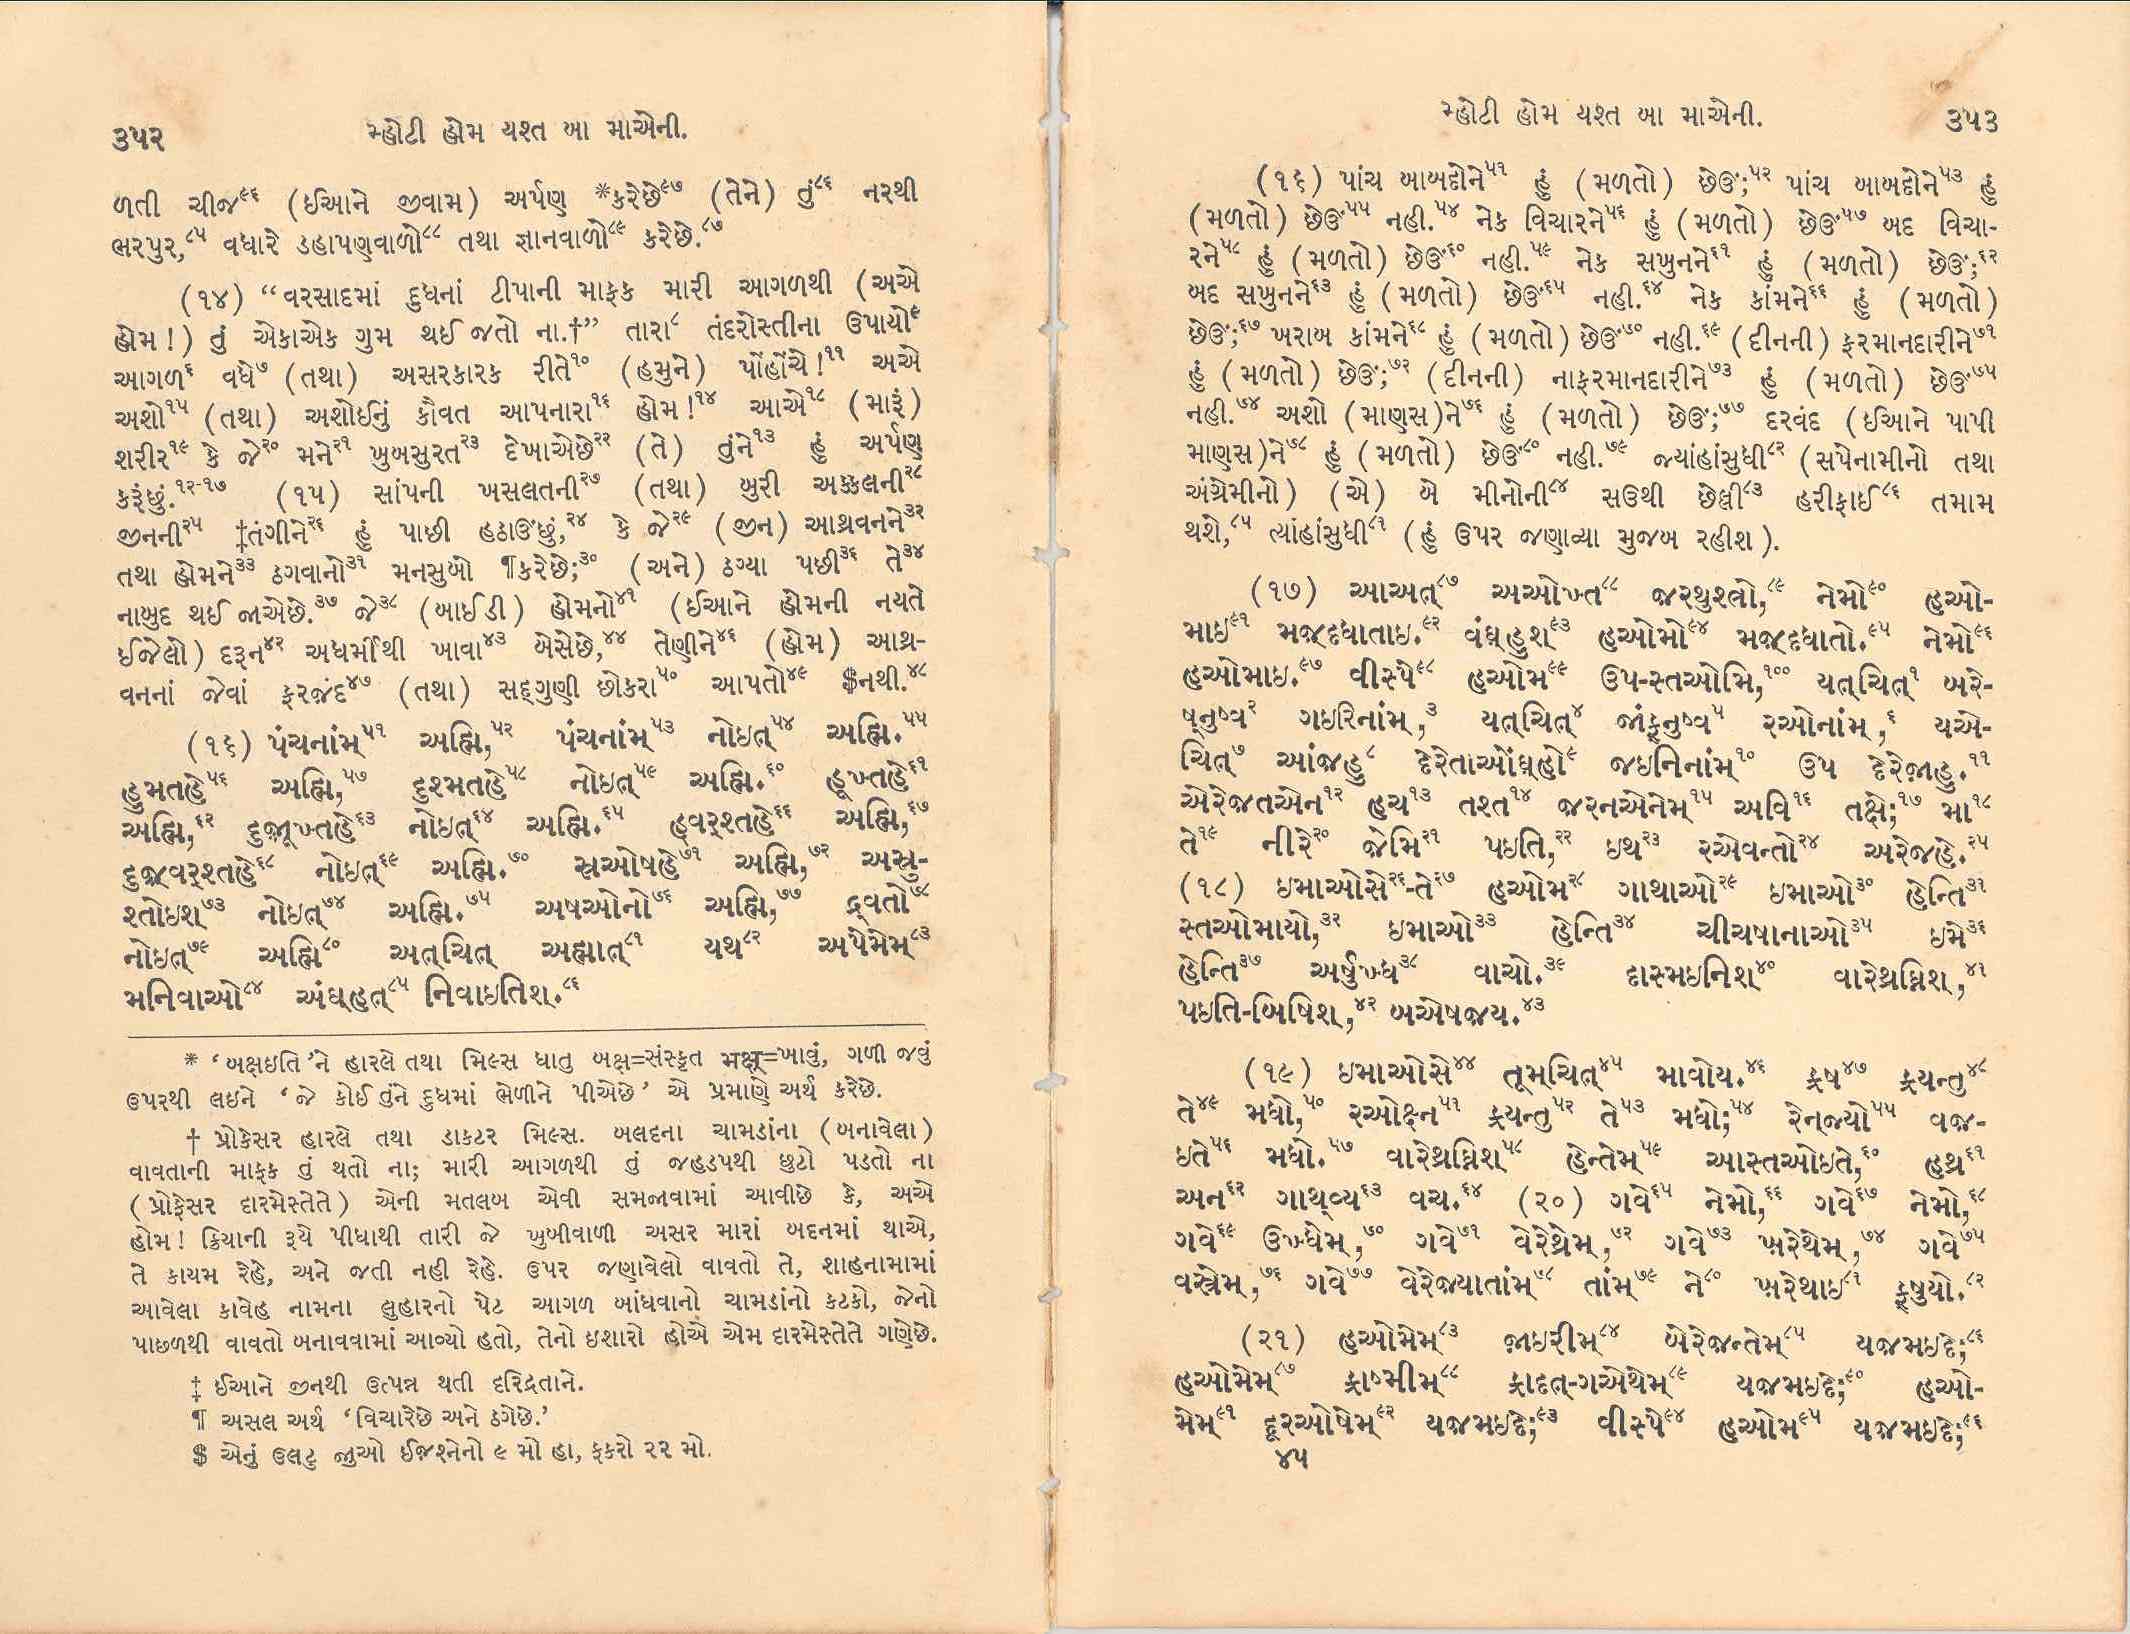 ૩૫૨ મ્હોટી હોમ યશ્ત બા માએની.
ળતી ચીજ૯૬ (ઈઆને જીવામ) અર્પણ *કરેછે૯૭ (તેને) તું૮૬ નરથી
ભરપુર,૮૫ વધારે ડહાપણવાળો૮૮ તથા જ્ઞાનવાળો૮૯ કરેછે.૮૭
(૧૪) “વરસાદમાં દુધનાં ટીપાની માફક મારી આગળથી (અએ
હોમ!) તું એકાએક ગુમ થઈ જતો ના.†” તારા૮ તંદરોસ્તીના ઉપાયો૯
આગળ૬ વધે૭ (તથા) અસરકારક રીતે૧૦ (હમુને) પોંહોંચે!૧૧ અએ
અશો૧૫ (તથા) અશોઈનું કૌવત આપનારા૧૬ હોમ!૧૪ આએ૧૮ (મારૂં)
શરીર૧૯ કે જે૨૦ મને૨૧ ખુબસુરત૨૩ દેખાએછે૨૨ (તે) તુંને૧૩ હું અર્પણ
કરૂંછું.૧૨-૧૭ (૧૫) સાંપની ખસલતની૨૭ (તથા) બુરી અક્કલની૨૮
જીનની૨૫ ‡તંગીને૨૬ હું પાછી હઠાઊંછું,૨૪ કે જે૨૯ (જીન) આથ્રવનને૩૨
તથા હોમને૩૩ ઠગવાનો૩૧ મનસુબો ¶કરેછે;૩૦ (અને) ઠગ્યા પછી૩૬ તે૩૪
નાબુદ થઈ જાએછે.૩૭ જે૩૮ (બાઈડી) હોમનો૪૧ (ઈઆને હોમની નયતે
ઈજેલો) દરૂન૪૨ અધર્મીથી ખાવા૪૩ બેસેછે,૪૪ તેણીને૪૬ (હોમ) આથ્ર-
વનનાં જેવાં ફરજંદ૪૭ (તથા) સદ્ગુણી છોકરા૫૦ આપતો૪૯ $નથી.૪૮
(૧૬) પંચનાંમ્૫૧ અહ્મિ,૫૨ પંચનાંમ્૫૩ નોઇત્૫૪ અહ્મિ.૫૫
હુમતહે૫૬ અહ્મિ,૫૭ દુશ્મતહે૫૮ નોઇત્૫૯ અહ્મિ.૬૦ હૂખ્તહે૬૧
અહ્મિ,૬૨ દુજ઼ૂખ્તહે૬૩ નોઇત્૬૪ અહ્મિ.૬૫ હ્વર્શ્તહે૬૬ અહ્મિ,૬૭
દુજ઼્વર્શ્તહે૬૮ નોઇત્૬૯ અહ્મિ.૭૦ સ્રઓષહે૭૧ અહ્મિ,૭૨ અસ્રુ-
શ્તોઇશ્૭૩ નોઇત્૭૪ અહ્મિ.૭૫ અષઓનો૭૬ અહ્મિ,૭૭ દ્ર્વતો૭૮
નોઇત્૭૯ અહ્મિ૮૦ અત્ચિત્ અહ્માત્૮૧ યથ૮૨ અપેમેમ્૮૩
મનિવાઓ૮૪ અંઘ્હત્૮૫ નિવાઇતિશ્.૮૬
* ‘બક્ષઇતિ’ને હારલે તથા મિલ્સ ધાતુ બક્ષ=સંસ્કૃત भक्ष्=ખાવું, ગળી જવું
ઉપરથી લઇને ‘જે કોઈ તુંને દુધમાં ભેળીને પીએછે’ એ પ્રમાણે અર્થ કરેછે.
† પ્રોફેસર હારલે તથા ડાકટર મિલ્સ. બલદના ચામડાંના (બનાવેલા)
વાવતાની માફક તું થતો ના; મારી આગળથી તું જહડપથી છુટો પડતો ના
(પ્રોફેસર દારમેસ્તેતે) એની મતલબ એવી સમજાવામાં આવીછે કે, અએ
હોમ! ક્રિયાની રૂયે પીધાથી તારી જે ખુબીવાળી અસર મારાં બદનમાં થાએ,
તે કાયમ રેહે, અને જતી નહી રેહે. ઉપર જણાવેલો વાવતો તે, શાહનામામાં
આવેલા કાવેહ નામના લુહારનો પેટ આગળ બાંધવાનો ચામડાંનો કટકો, જેનો
પાછળથી વાવતો બનાવવામાં આવ્યો હતો, તેનો ઇશારો હોએ એમ દારમેસ્તેતે ગણેછે.
‡ ઈઆને જીનથી ઉત્પન્ન થતી દરિદ્રતાને.
¶ અસલ અર્થ ‘વિચારેછે અને ઠગેછે.’
$ એનું ઉલટુ જુઓ ઈજશ્નેનો ૯ મો હા, ફકરો ૨૨ મો.
મ્હોટી હોમ યશ્ત બા માએની. ૩૫૩
(૧૬) પાંચ બાબદોને૫૧ હું (મળતો) છેઊં;૫૨ પાંચ બાબદોને૫૩ હું
(મળતો) છેઊં૫૫ નહી.૫૪ નેક વિચારને૫૬ હું (મળતો) છેઊં૫૭ બદ વિચા-
રને૫૮ હું (મળતો) છેઊં૬૦ નહી.૫૯ નેક સખુનને૬૧ હું (મળતો) છેઊં;૬૨
બદ સખુનને૬૩ હું (મળતો) છેઊં૬૫ નહી.૬૪ નેક કાંમને૬૬ હું (મળતો)
છેઊં;૬૭ ખરાબ કાંમને૬૮ હું (મળતો) છેઊં૭૦ નહી.૬૯ (દીનની) ફરમાનદારીને૭૧
હું (મળતો) છેઊં;૭૨ (દીનની) નાફરમાનદારીને૭૩ હું (મળતો) છેઊં૭૫
નહી.૭૪ અશો (માણસ)ને૭૬ હું (મળતો) છેઊં;૭૭ દરવંદ (ઈઆને પાપી
માણસ)ને૭૮ હું (મળતો) છેઊં૮૦ નહી.૭૯ જ્યાંહાંસુધી૮૨ (સપેનામીનો તથા
અંગ્રેમીનો) (એ) બે મીનોની૮૪ સઉથી છેલ્લી૮૩ હરીફાઈ૮૬ તમામ
થશે,૮૫ ત્યાંહાંસુધી૮૧ (હું ઉપર જણાવ્યા મુજબ રહીશ).
(૧૭) આઅત્૮૭ અઓખ્ત૮૮ જ઼રથુશ્ત્રો,૮૯ નેમો૯૦ હઓ-
માઇ૯૧ મજ઼્દધાતાઇ.૯૨ વંઘ્હુશ્૯૩ હઓમો૯૪ મજ઼્દધાતો.૯૫ નેમો૯૬
હઓમાઇ.૯૭ વીસ્પે૯૮ હઓમ૯૯ ઉપ-સ્તઓમિ,૧૦૦ યત્ચિત્૧ બરે-
ષ્નુષ્વ૨ ગઇરિનાંમ્,૩ યત્ચિત્૪ જાંફ્નુષ્વ૫ રઓનાંમ્,૬ યએ-
ચિત્૭ આંજ઼હુ૮ દેરેતાઓંઘ્હો૯ જઇનિનાંમ્૧૦ ઉપ દેરેજ઼ાહુ.૧૧
એરેજ઼તએન૧૨ હચ૧૩ તશ્ત૧૪ જ઼રનએનેમ્૧૫ અવિ૧૬ તક્ષે;૧૭ મા૧૮
તે૧૯ નીરે૨૦ જ઼ેમિ૨૧ પઇતિ,૨૨ ઇથ૨૩ રએવન્તો૨૪ અરેજહે.૨૫
(૧૮) ઇમાઓસે૨૬-તે૨૭ હઓમ૨૮ ગાથાઓ૨૯ ઇમાઓ૩૦ હેન્તિ૩૧
સ્તઓમાયો,૩૨ ઇમાઓ૩૩ હેન્તિ૩૪ ચીચષાનાઓ૩૫ ઇમે૩૬
હેન્તિ૩૭ અર્ષુખ્ધ૩૮ વાચો.૩૯ દાસ્મઇનિશ્૪૦ વારેથ્રઘ્નિશ્,૪૧
પઇતિ-બિષિશ્,૪૨ બએષજ઼ય.૪૩
(૧૯) ઇમાઓસે૪૪ તૂમ્ચિત્૪૫ માવોય.૪૬ ફ્રષ૪૭ ફ્રયન્તુ૪૮
તે૪૯ મધો,૫૦ રઓક્ષ્ન૫૧ ફ્રયન્તુ૫૨ તે૫૩ મધો;૫૪ રેન્જ્યો૫૫ વજ઼-
ઇતે૫૬ મધો.૫૭ વારેથ્રઘ્નિશ્૫૮ હેન્તેમ્૫૯ આસ્તઓઇતે,૬૦ હથ્ર૬૧
અન૬૨ ગાથ્વ્ય૬૩ વચ.૬૪ (૨૦) ગવે૬૫ નેમો,૬૬ ગવે૬૭ નેમો,૬૮
ગવે૬૯ ઉખ્ધેમ્,૭૦ ગવે૭૧ વેરેથ્રેમ્,૭૨ ગવે૭૩ ખ઼રેથેમ્,૭૪ ગવે૭૫
વસ્ત્રેમ્,૭૬ ગવે૭૭ વેરેજ઼્યાતાંમ્૭૮ તાંમ્૭૯ ને૮૦ ખ઼રેથાઇ૮૧ ફ્ષુયો.૮૨
(૨૧) હઓમેમ્૮૩ જ઼ાઇરીમ્૮૪ બેરેજ઼ન્તેમ્૮૫ યજ઼મઇદે;૮૬
હઓમેમ્૮૭ ફ્રાષ્મીમ્૮૮ ફ્રાદત્-ગએથેમ્૮૯ યજ઼મઇદે;૯૦ હઓ-
મેમ્૯૧ દૂરઓષેમ્૯૨ યજ઼મઇદે;૯૩ વીસ્પે૯૪ હઓમ૯૫ યજ઼મઇદે;૯૬
૪૫